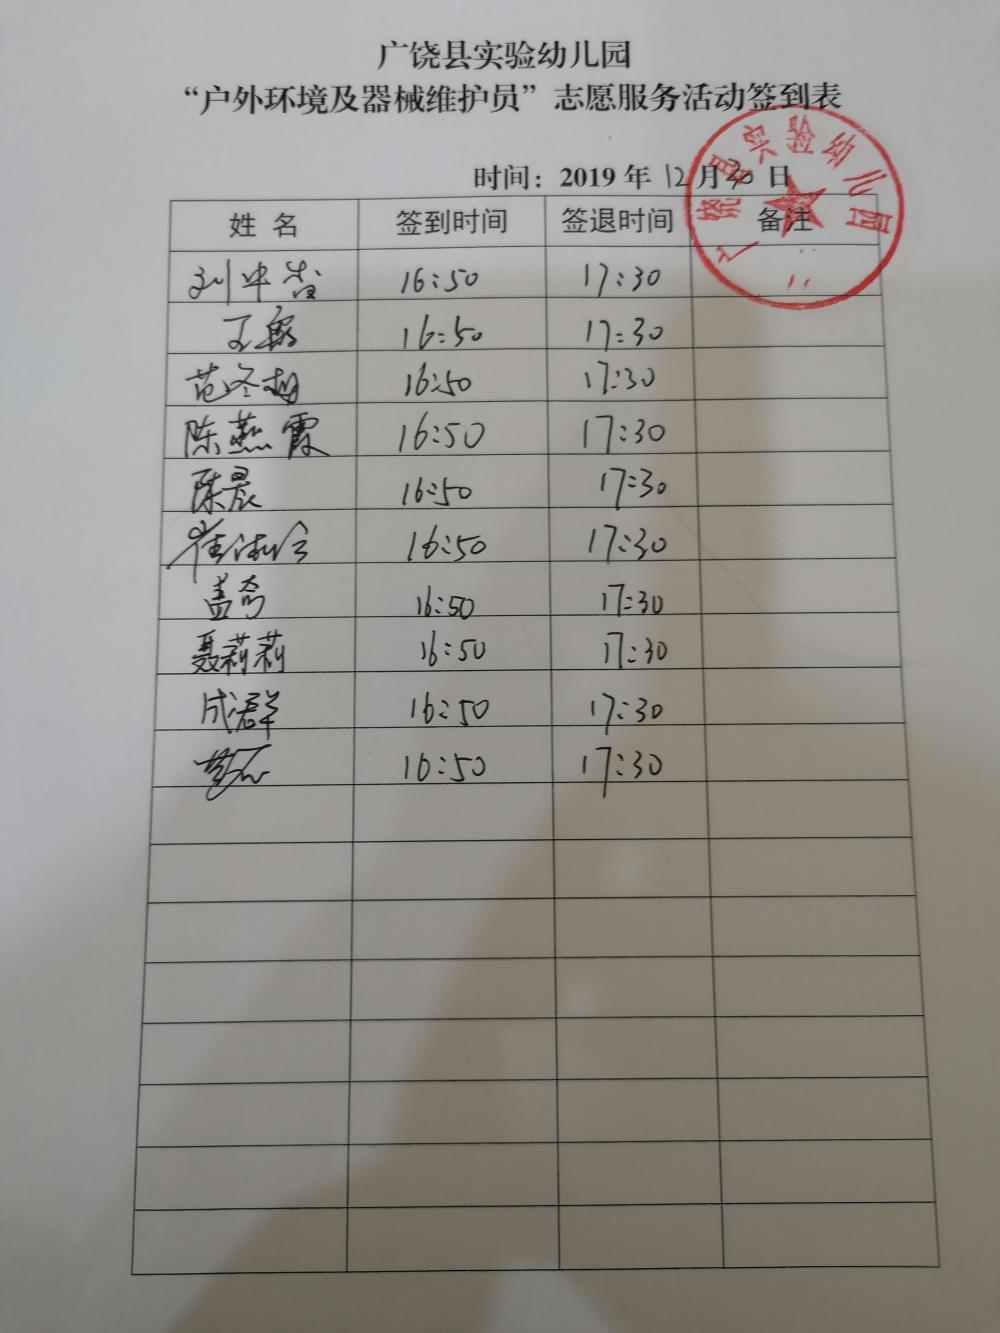 广饶县实验幼儿园
“户外环境及器械维护员”志愿服务活动签到表
时间：2019年12月30日
广饶县实验幼儿园
姓 名 签到时间 签退时间 备注
16:50 17:30
王 16:50 17:30
范冬梅 16:50 17:30
陈燕霞 16:50 17:30
陈晨 16:50 17:30
崔 16:50 17:30
盖奇 16:50 17:30
聂莉莉 16:50 17:30
成群 16:50 17:30
16:50 17:30